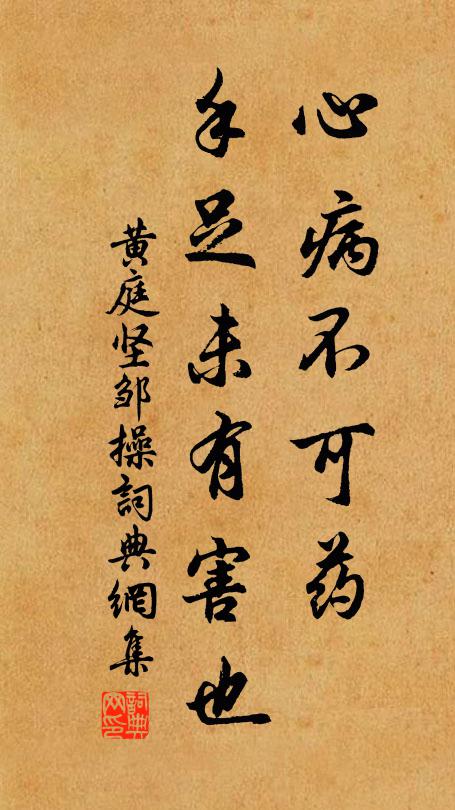 心病不可药
手足未有害也
黄庭坚邹操詞典網集
詞典
网印